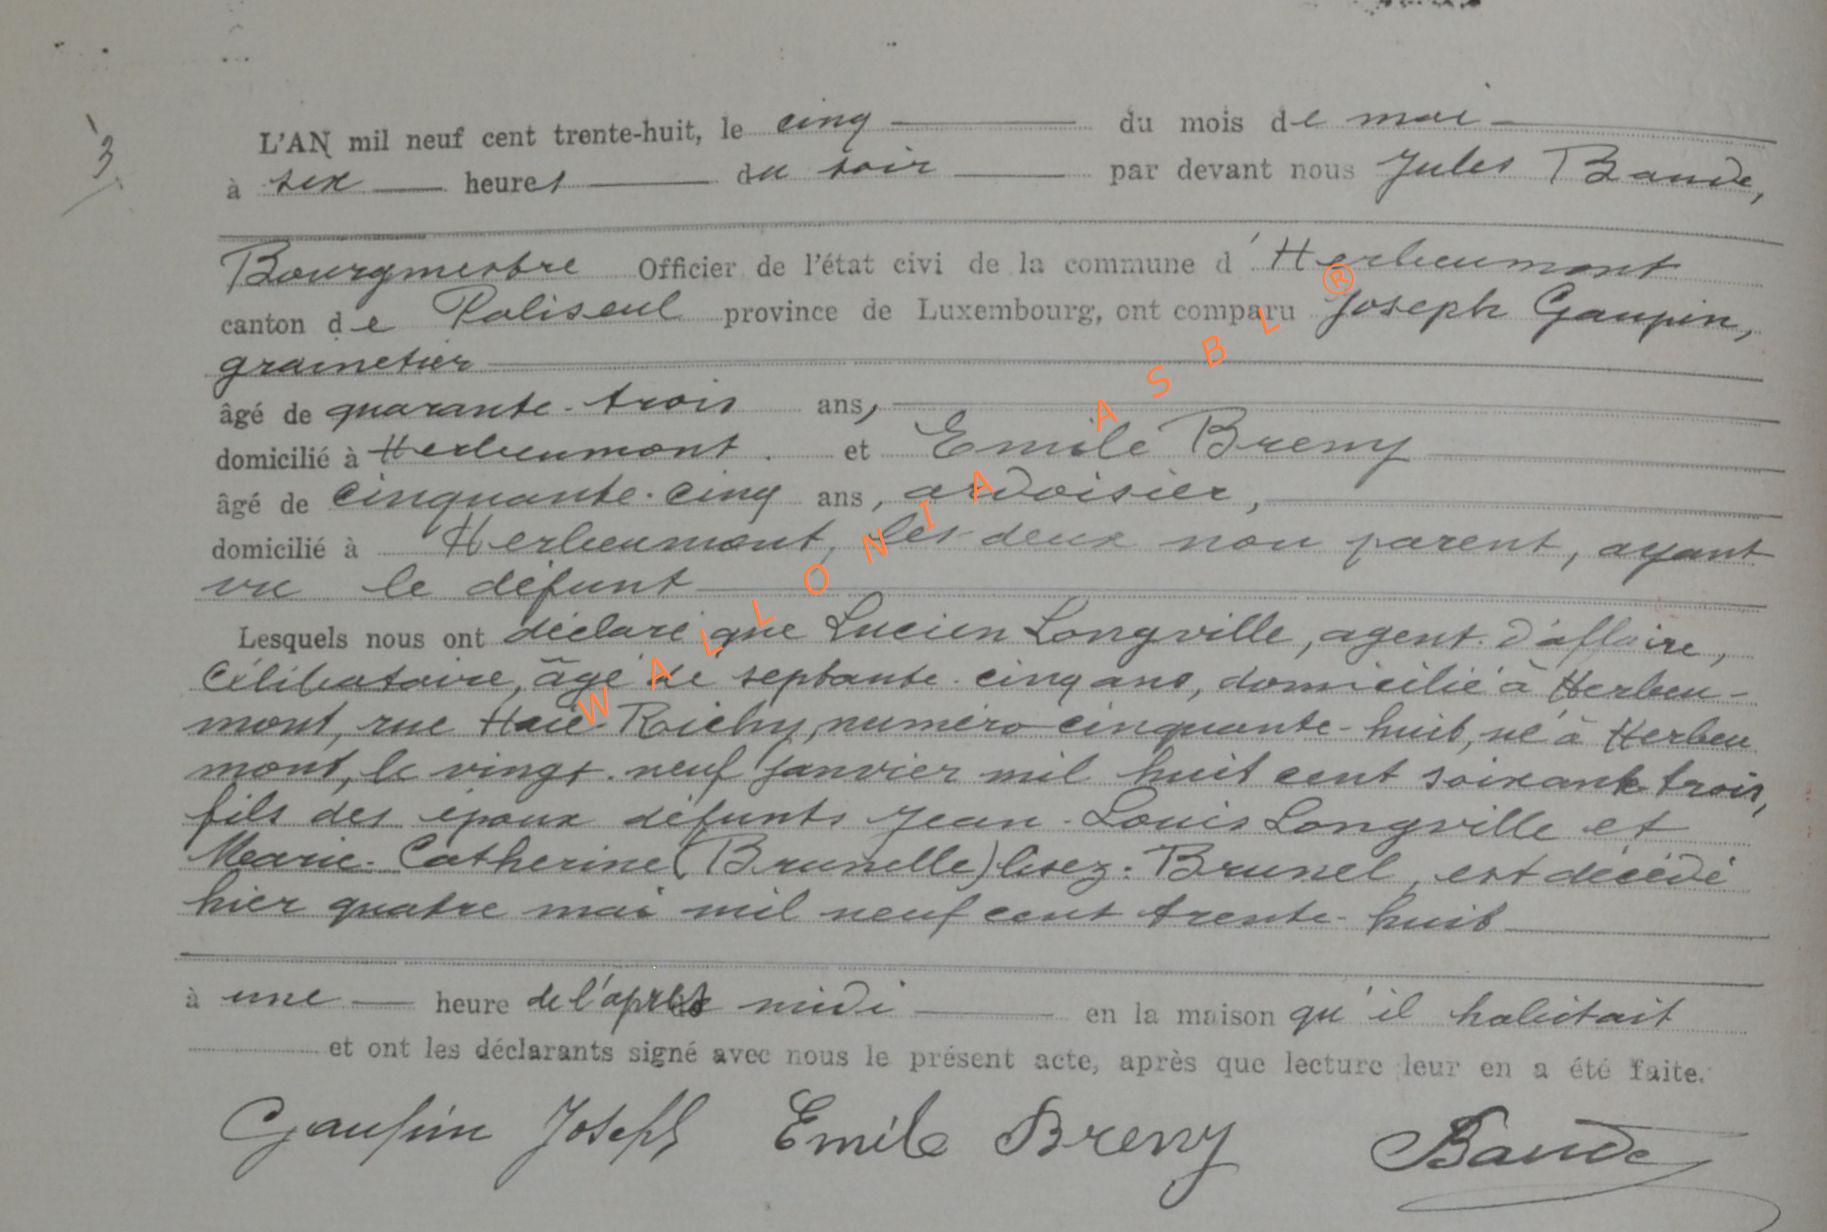 3
L'AN mil neuf cent trente-huit, le cinq du mois de mai
à six heures du soir par devant nous Jules Baude,
Bourgmestre Officier de l'état civi de la commune d'Herbeumont
canton de Paliseul province de Luxembourg, ont comparu Joseph Gaupin,
grainetier
âgé de quarante-trois ans,
domicilié à Herbeumont. et Emile Breny
âgé de cinquante-cinq ans, ardoisier,
domicilié à Herbeumont, les deux non parent, ayant
vu le défunt
Lesquels nous ont déclaré que Lucien Longville, agent d'affaire,
célibataire, âgé de septante-cinq ans, domicilié à Herbeu-
mont, rue Haie Richy, numéro cinquante-huit, né à Herbeu
mont, le vingt-neuf janvier mil huit cent soixante trois,
fils des époux défunts Jean-Louis Longville et
Marie-Catherine (Brunelle) lisez: Brunel, est décédé
hier quatre mai mil neuf cent trente-huit
à une heure de l'après midi en la maison qu'il habitait
et ont les déclarants signé avec nous le présent acte, après que lecture leur en a été faite.
Gaupin Joseph Emile Breny Baude
WALLONIA ASBL ®